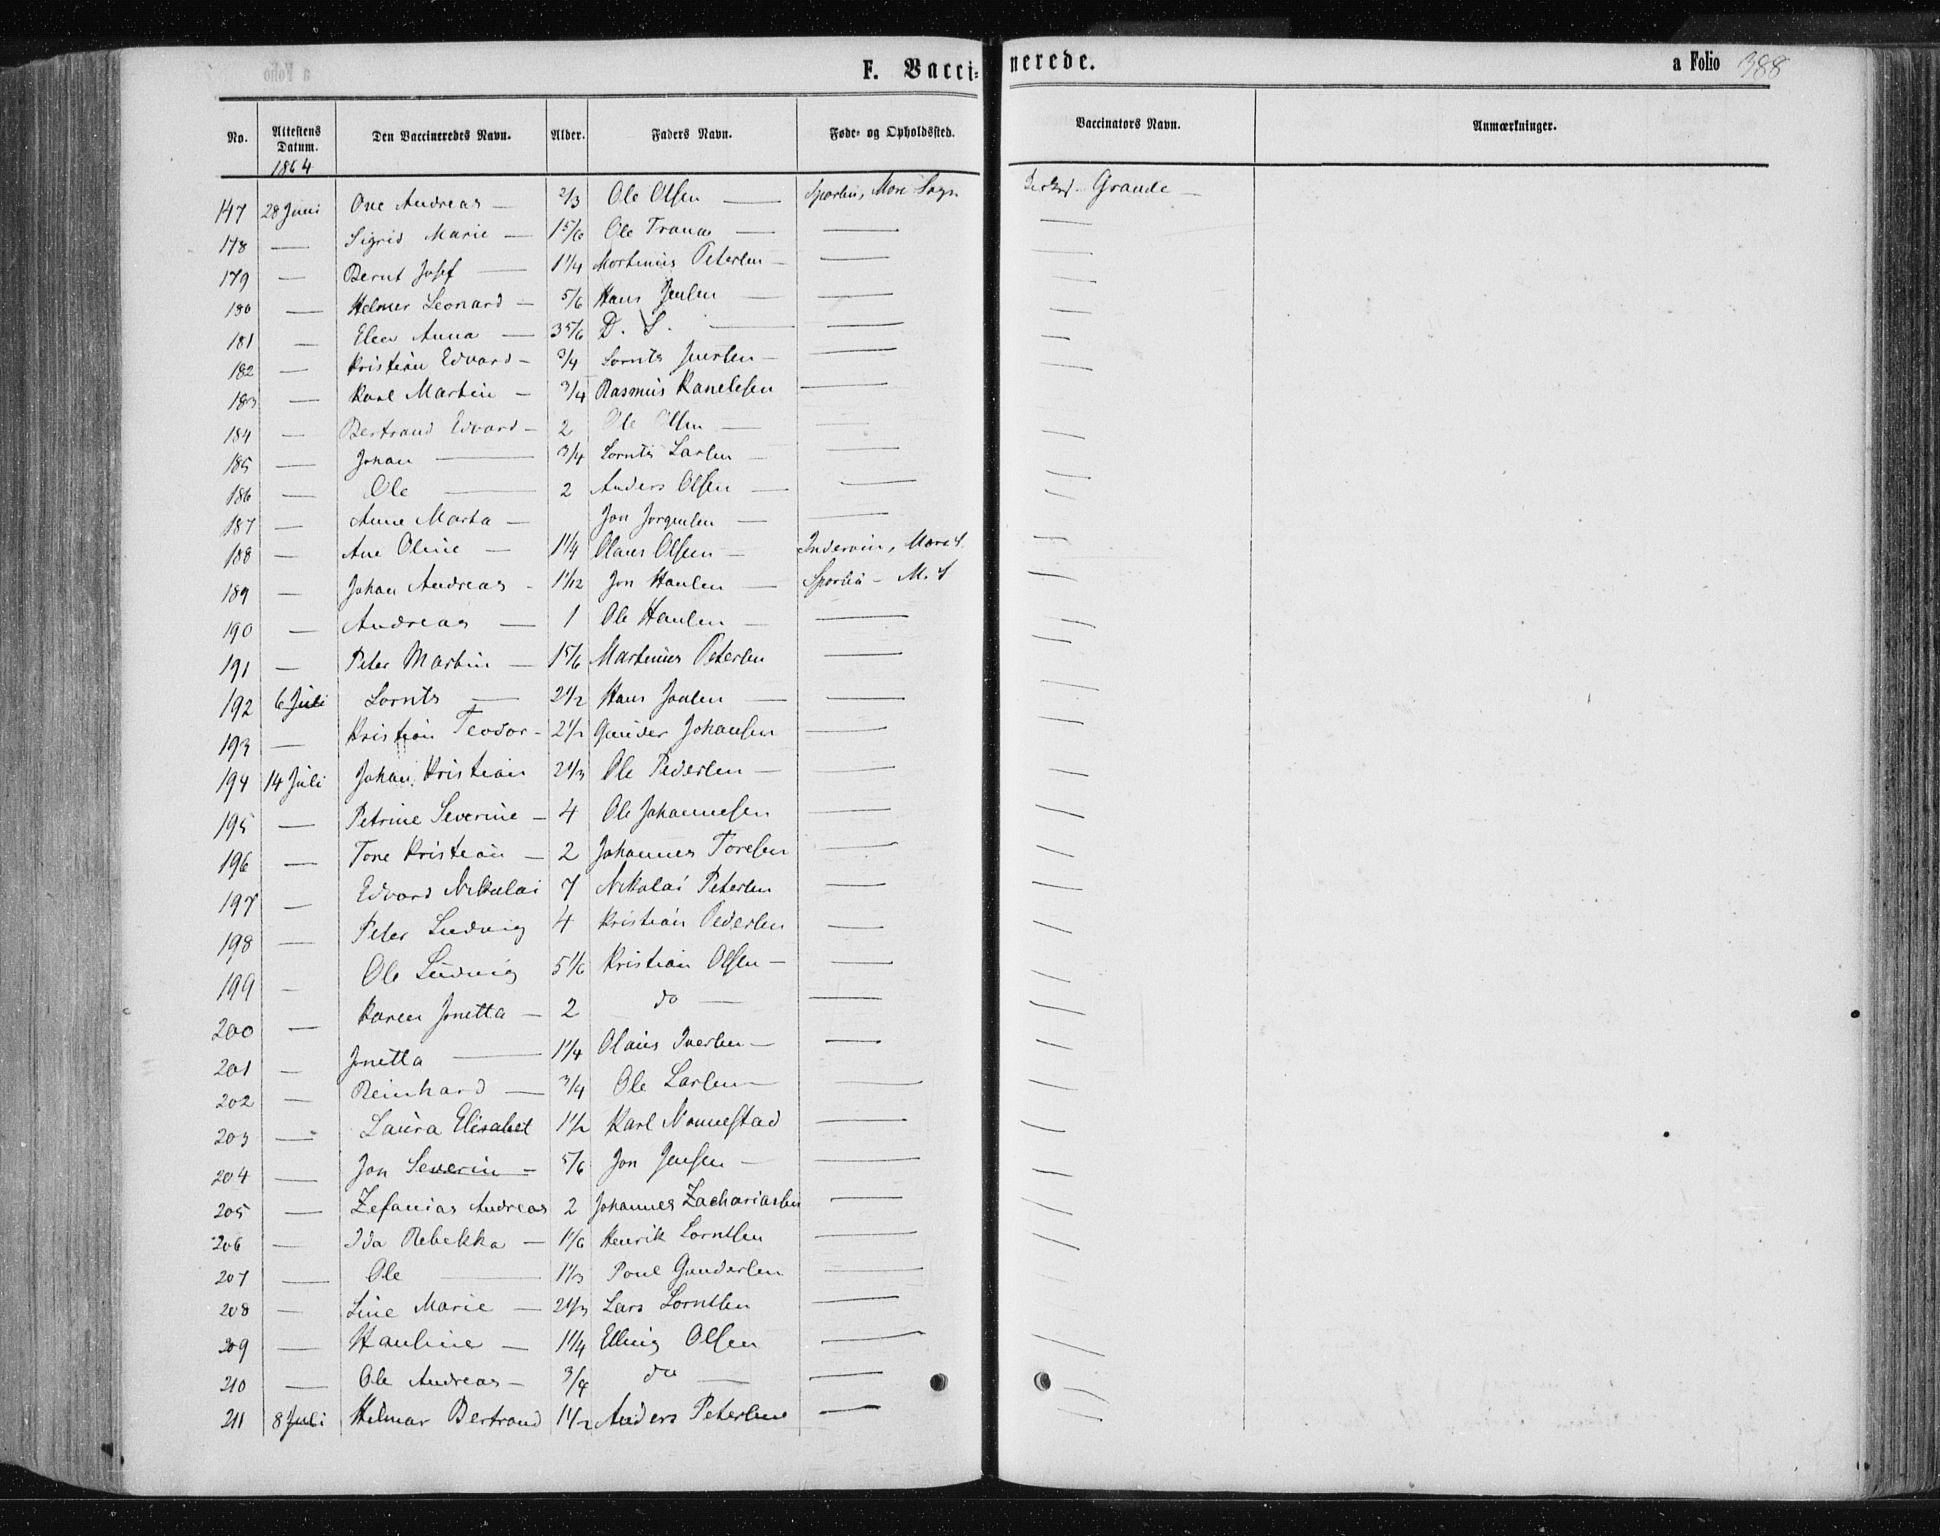 F. Vaccinerede. a Folio 388
No. Attestens Datum. Den Vaccineredes Navn. Alder. Faders Navn. Føde- og Opholdssted. Vaccinators Navn. Anmærkninger.
1864
147 28 Juni Ove Andreas — 2/3 Ole Olsen — Sparbu, Mære Sogn Grande —
178 — Sigrid Marie — 1 5/6 Ole Tranaas — — —
179 — Bernt Josef — 1 1/4 Mortinus Petersen — — —
180 — Helmer Leonard — 5/6 Hans Jensen — — —
181 — Elen Anna — 3 5/6 D. S. — — —
182 — Kristian Edvard — 3/4 Lornts Iversen — — —
183 — Karl Martin — 3/4 Rasmus Kanelesen — —
184 — Bertrand Edvard — 2 Ole Olsen — — —
185 — Johan — 3/4 Lornts Larsen — — —
186 — Ole — 2 Anders Olsen — — —
187 — Anne Marta — Jon Jørgensen — — —
188 — Ane Oline — 1 1/4 Olaus Olsen — Inderøen, Mære S. —
189 — Johan Andreas — 1 1/12 Jon Hansen — Sparbu — M. S —
190 — Andreas — 1 Ole Hansen — — —
191 — Peter Martin — 1 5/6 Martinus Petersen — —
192 6 Juli Lornts — 2 1/2 Hans Jonsen — — —
193 — Kristian Teodor — 2 1/2 Gunder Johansen — —
194 14 Juli Johan Kristian 2 1/3 Ole Pedersen — — —
195 — Petrine Severine — 4 Ole Johannesen — —
196 — Tore Kristian — 2 Johannes Toresen — —
197 — Edvard Nikolai 7 Nikolai Petersen — —
198 — Peter Ludvig 4 Kristian Pedersen — —
199 — Ole Ludvig 5 1/6 Kristian Olsen — — —
200 — Karen Jonetta — 2 do — — —
201 — Jonetta — 1 1/4 Olaus Iversen — — —
202 — Reinhard — 3/4 Ole Larsen — — —
203 — Laura Elisabet 1 1/2 Karl Nonnestad — —
204 — Jon Severin — 5/6 Jon Jensen — — —
205 — Zefanias Andreas 2 Johannes Zachariassen — —
206 — Ida Rebekka — 1 1/6 Henrik Lorntsen — —
207 — Ole — 1 1/3 Poul Gundersen — —
208 — Line Marie — 2 1/3 Lars Lorntsen — —
209 — Hansine — 1 1/4 Elling Olsen — —
210 — Ole Andreas — 3/4 do — — —
211 8 Juli Hilmar Bertrand 1 1/2 Anders Petersen — —